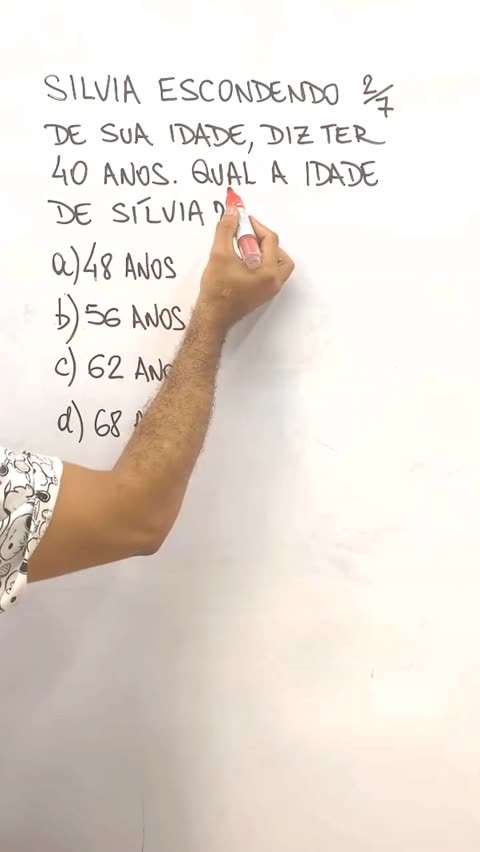 SILVIA ESCONDENDO 2/7
DE SUA IDADE, DIZ TER
40 ANOS. QUAL A IDADE
DE SÍLVIA?
a) 48 ANOS
b) 56 ANOS
c) 62
d) 68